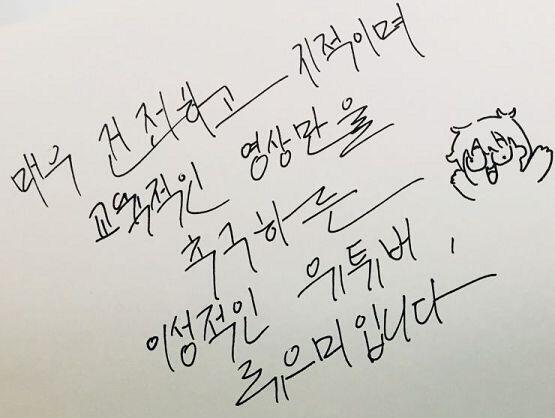 매우 건전하고 지적이며
교육적인 영상만을
추구하는
이성적인 유튜버,
류유미입니다